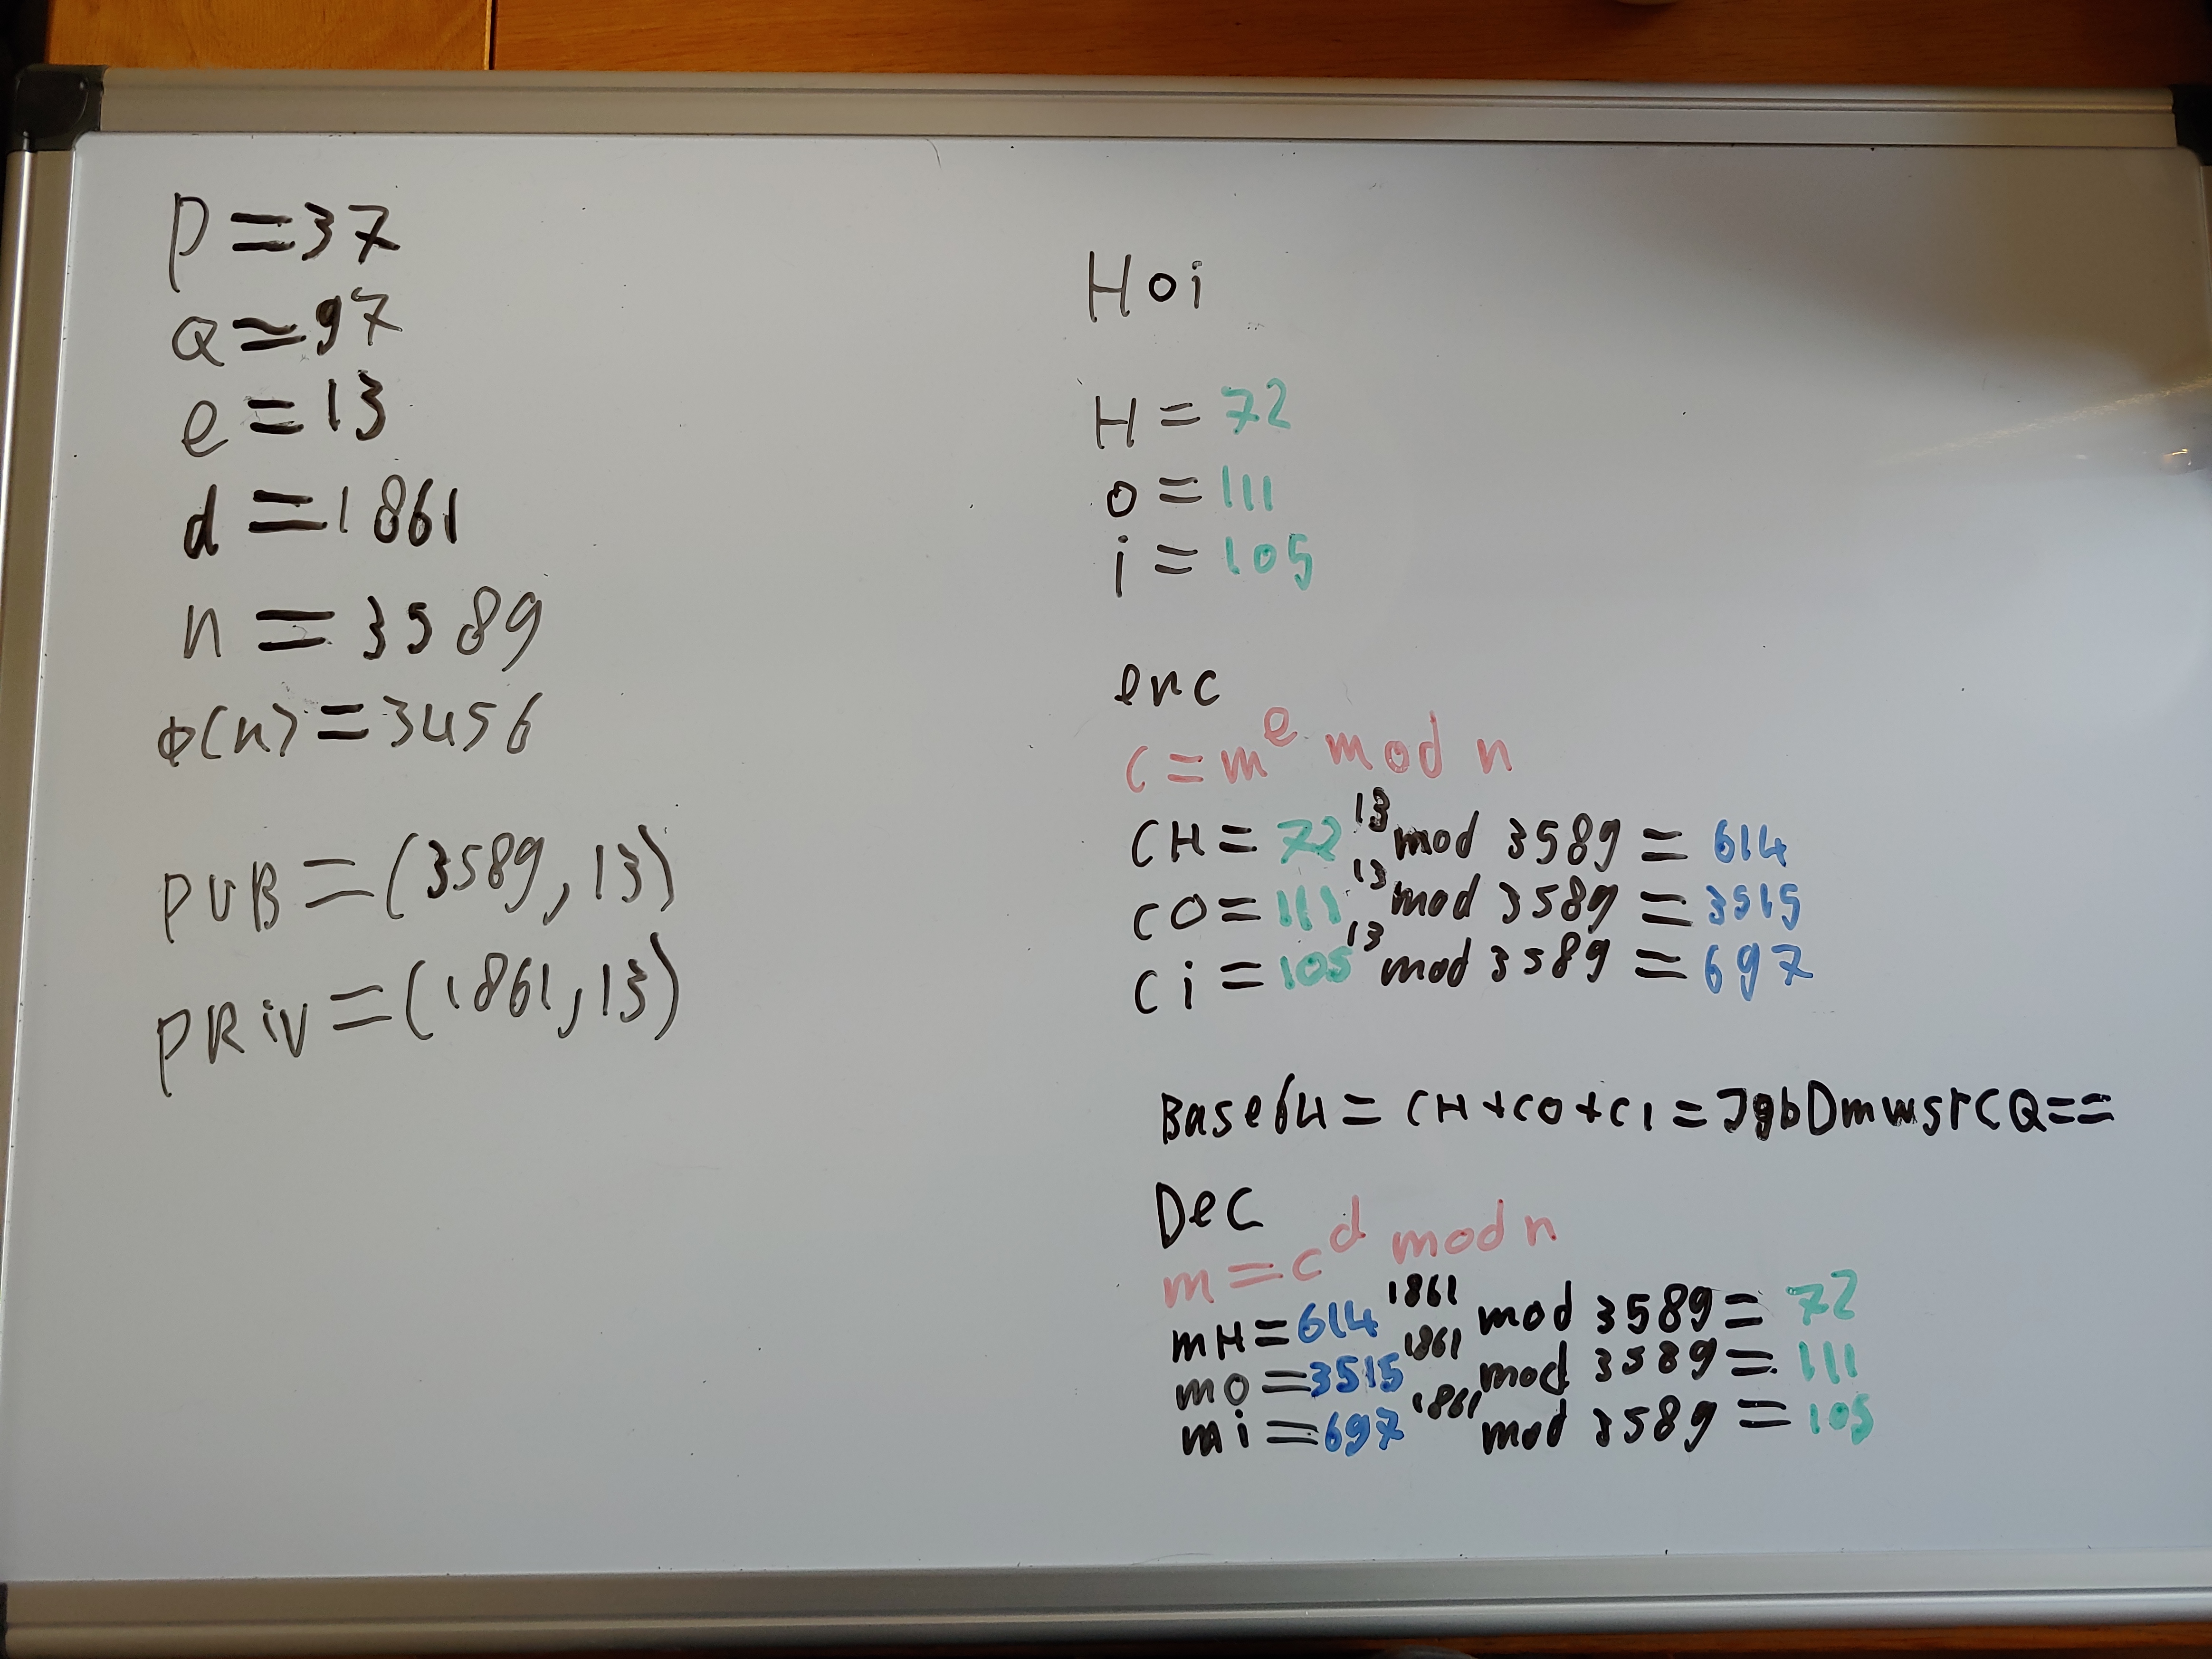 P=37
Q=97
e=13
d=1861
n=3589
φ(n)=3456
PUB=(3589,13)
PRiV=(1861,13)
Hoi
H=72
o=111
i=105
enc
c=m^e mod n
CH=72^13 mod 3589=614
CO=111^13 mod 3589=3515
Ci=105^13 mod 3589=697
Base64=CH+CO+Ci=JgbDmwsrCQ==
Dec
m=c^d mod n
mH=614^1861 mod 3589=72
mo=3515^1861 mod 3589=111
mi=697^1861 mod 3589=105